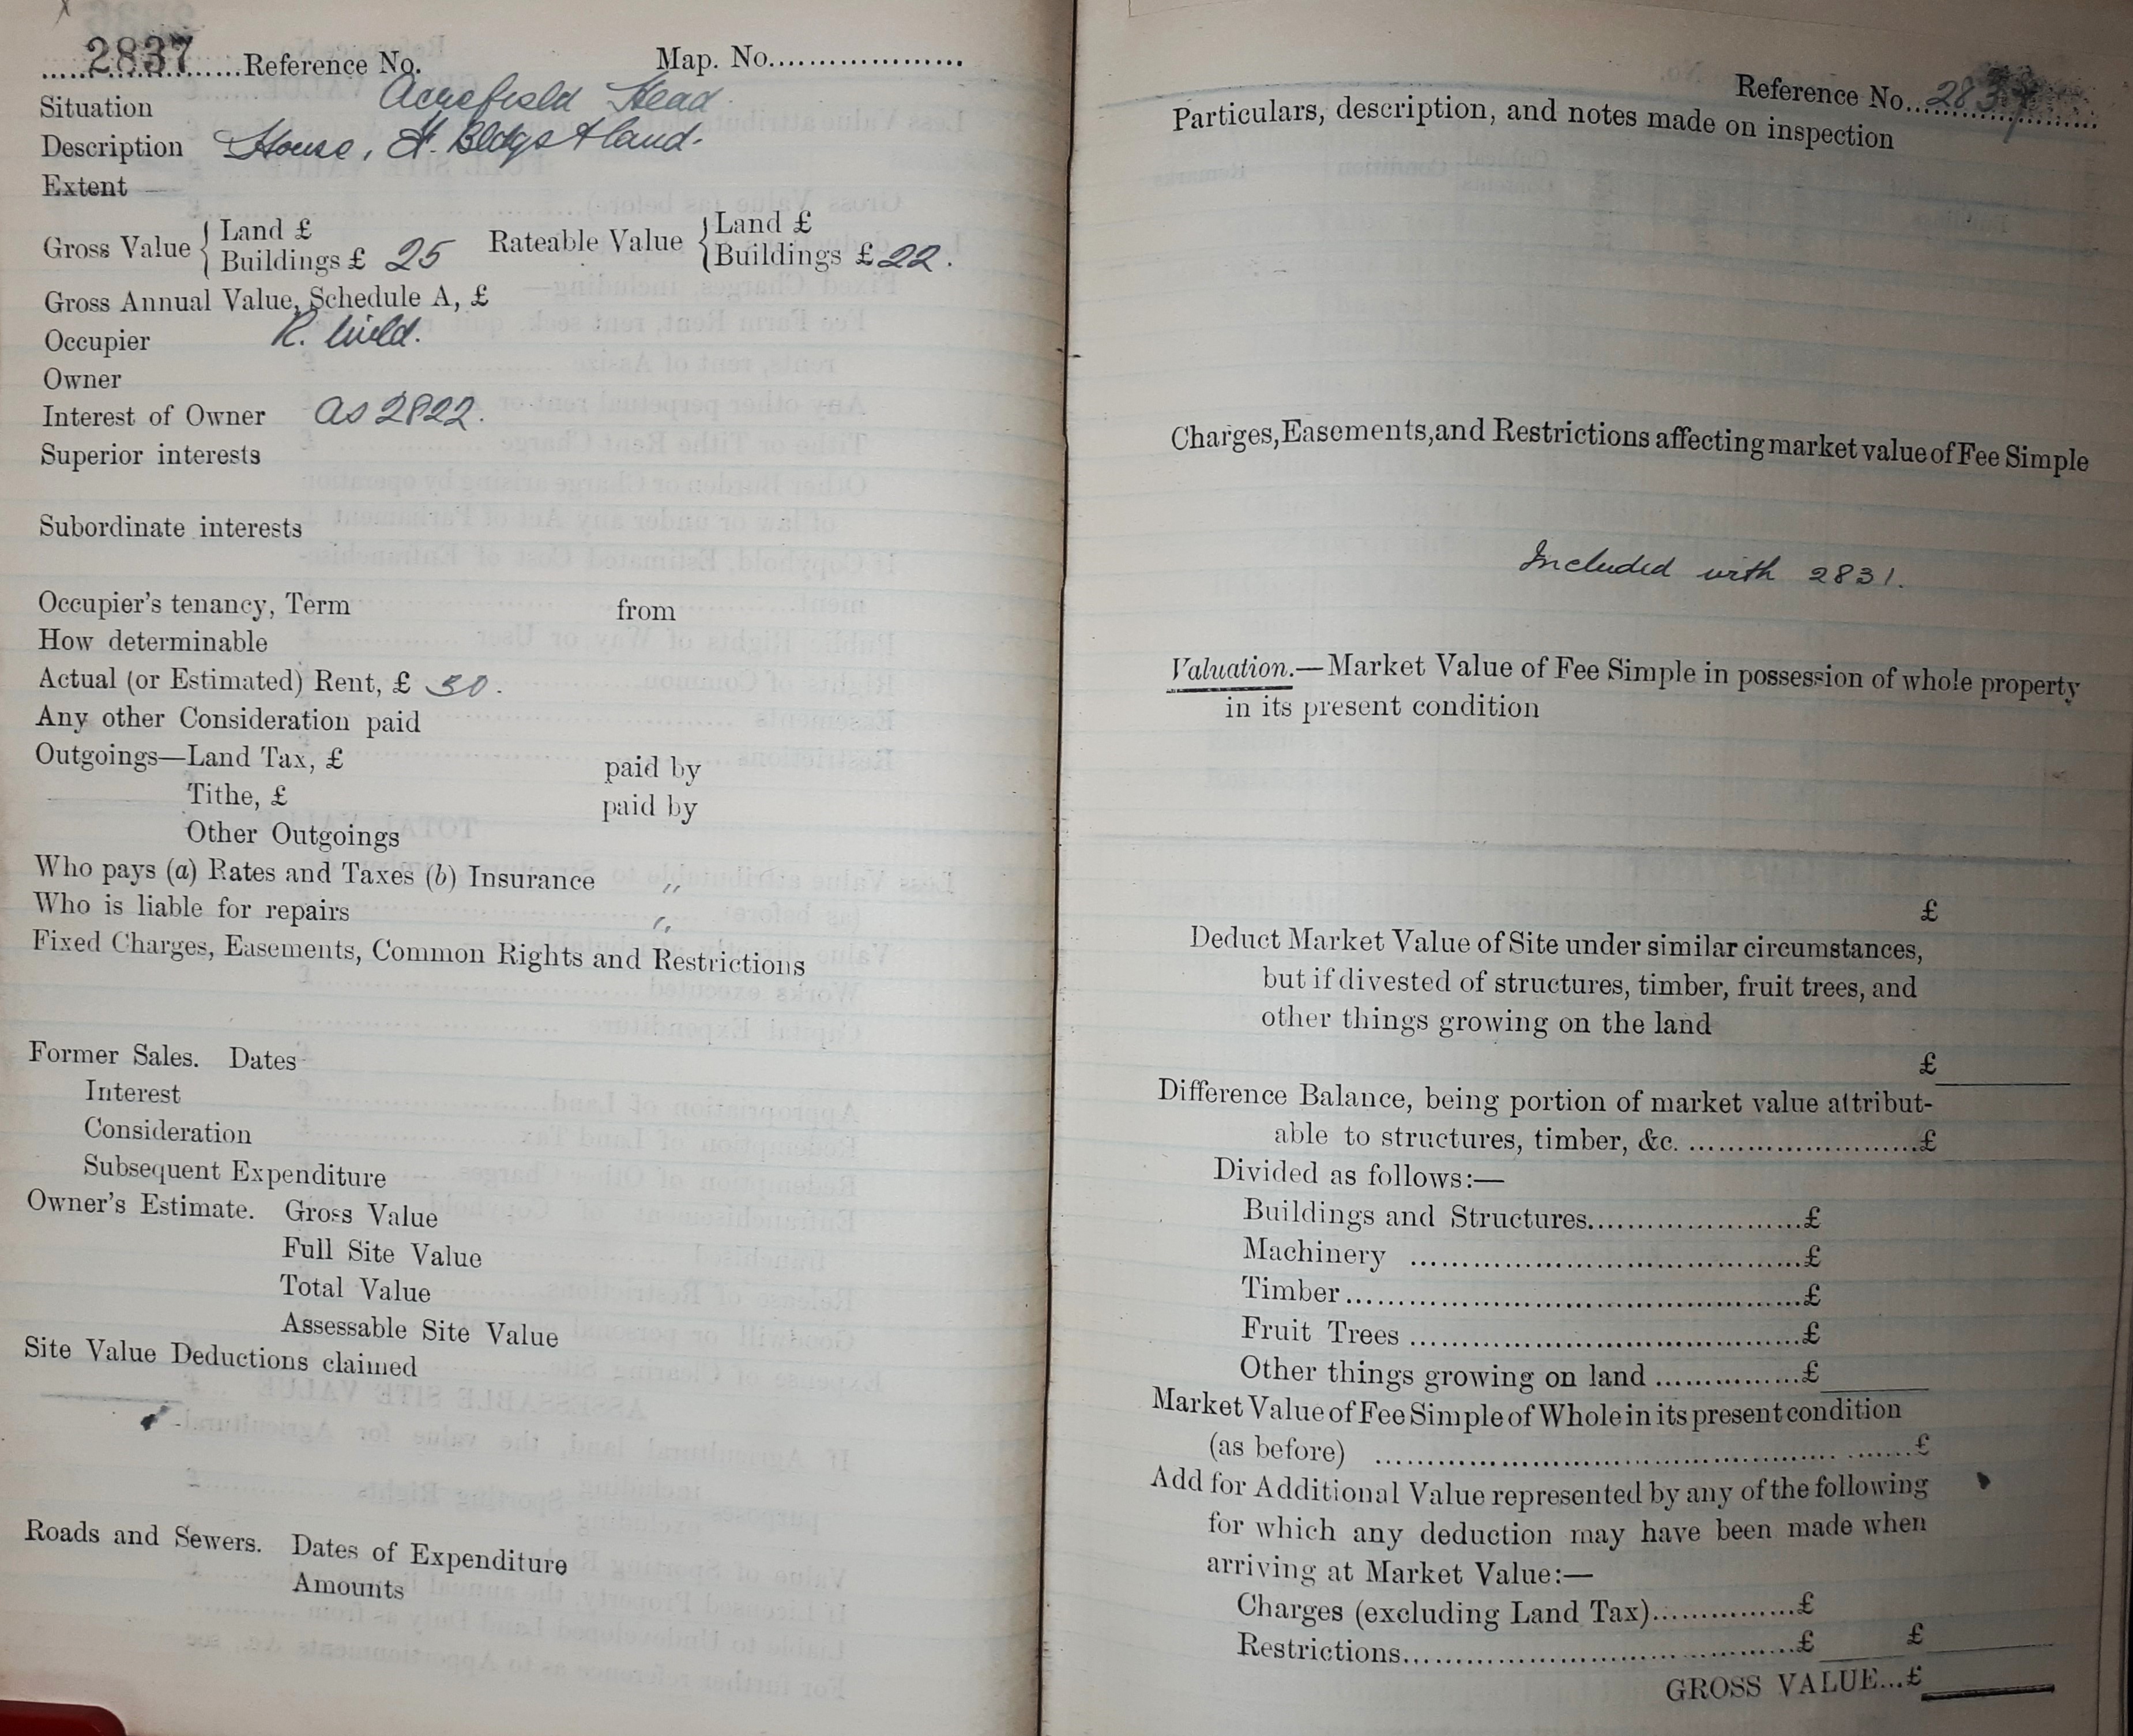 2837 Reference No. Map. No.
Situation Acrefield Head
Description House, F. Bldgs & land.
Extent —
Gross Value { Land £
Buildings £ 25
Rateable Value { Land £
Buildings £ 22.
Gross Annual Value, Schedule A, £
Occupier R. Wild.
Owner
Interest of Owner as 2822.
Superior interests
Subordinate interests
Occupier's tenancy, Term from
How determinable
Actual (or Estimated) Rent, £ 30.
Any other Consideration paid
Outgoings—Land Tax, £ paid by
Tithe, £ paid by
Other Outgoings
Who pays (a) Rates and Taxes (b) Insurance ,,
Who is liable for repairs ,,
Fixed Charges, Easements, Common Rights and Restrictions
Former Sales. Dates
Interest
Consideration
Subsequent Expenditure
Owner's Estimate. Gross Value
Full Site Value
Total Value
Assessable Site Value
Site Value Deductions claimed
Roads and Sewers. Dates of Expenditure
Amounts
Reference No. 2837
Particulars, description, and notes made on inspection
Charges, Easements, and Restrictions affecting market value of Fee Simple
Included with 2831.
Valuation.—Market Value of Fee Simple in possession of whole property
in its present condition
£
Deduct Market Value of Site under similar circumstances,
but if divested of structures, timber, fruit trees, and
other things growing on the land
£
Difference Balance, being portion of market value attribut-
able to structures, timber, &c. ........................£
Divided as follows:—
Buildings and Structures......................£
Machinery ......................................£
Timber............................................£
Fruit Trees ......................................£
Other things growing on land ...............£
Market Value of Fee Simple of Whole in its present condition
(as before) ......................................................£
Add for Additional Value represented by any of the following
for which any deduction may have been made when
arriving at Market Value:—
Charges (excluding Land Tax)...............£
Restrictions......................................£ £
GROSS VALUE...£